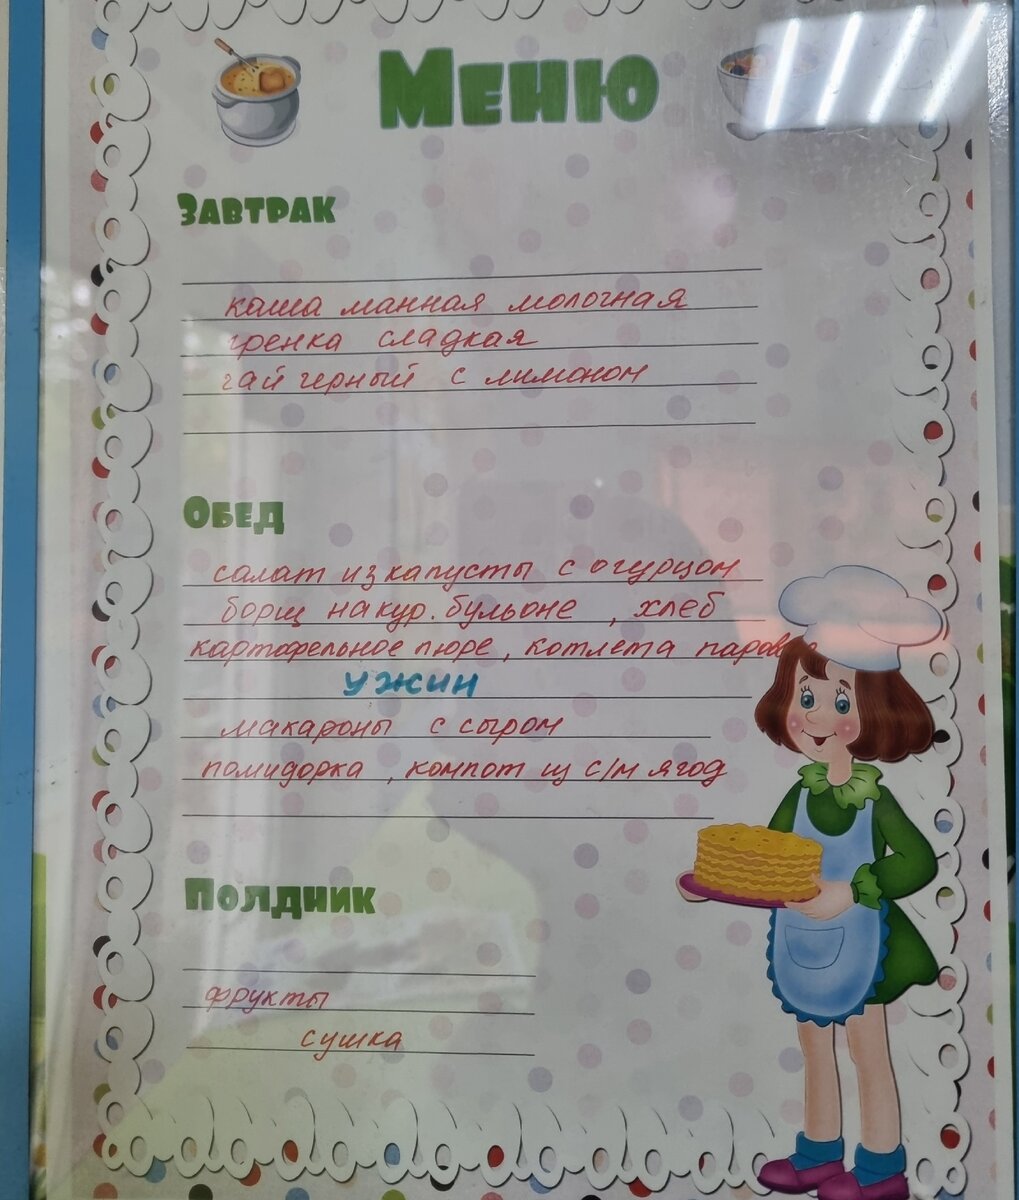 Меню
Завтрак
каша манная молочная
гренка сладкая
чай черный с лимоном
Обед
салат из капусты с огурцом
борщ на кур. бульоне , хлеб
картофельное пюре , котлета
ужин
макароны с сыром
помидорка , компот из с/м ягод
Полдник
фрукты
сушка